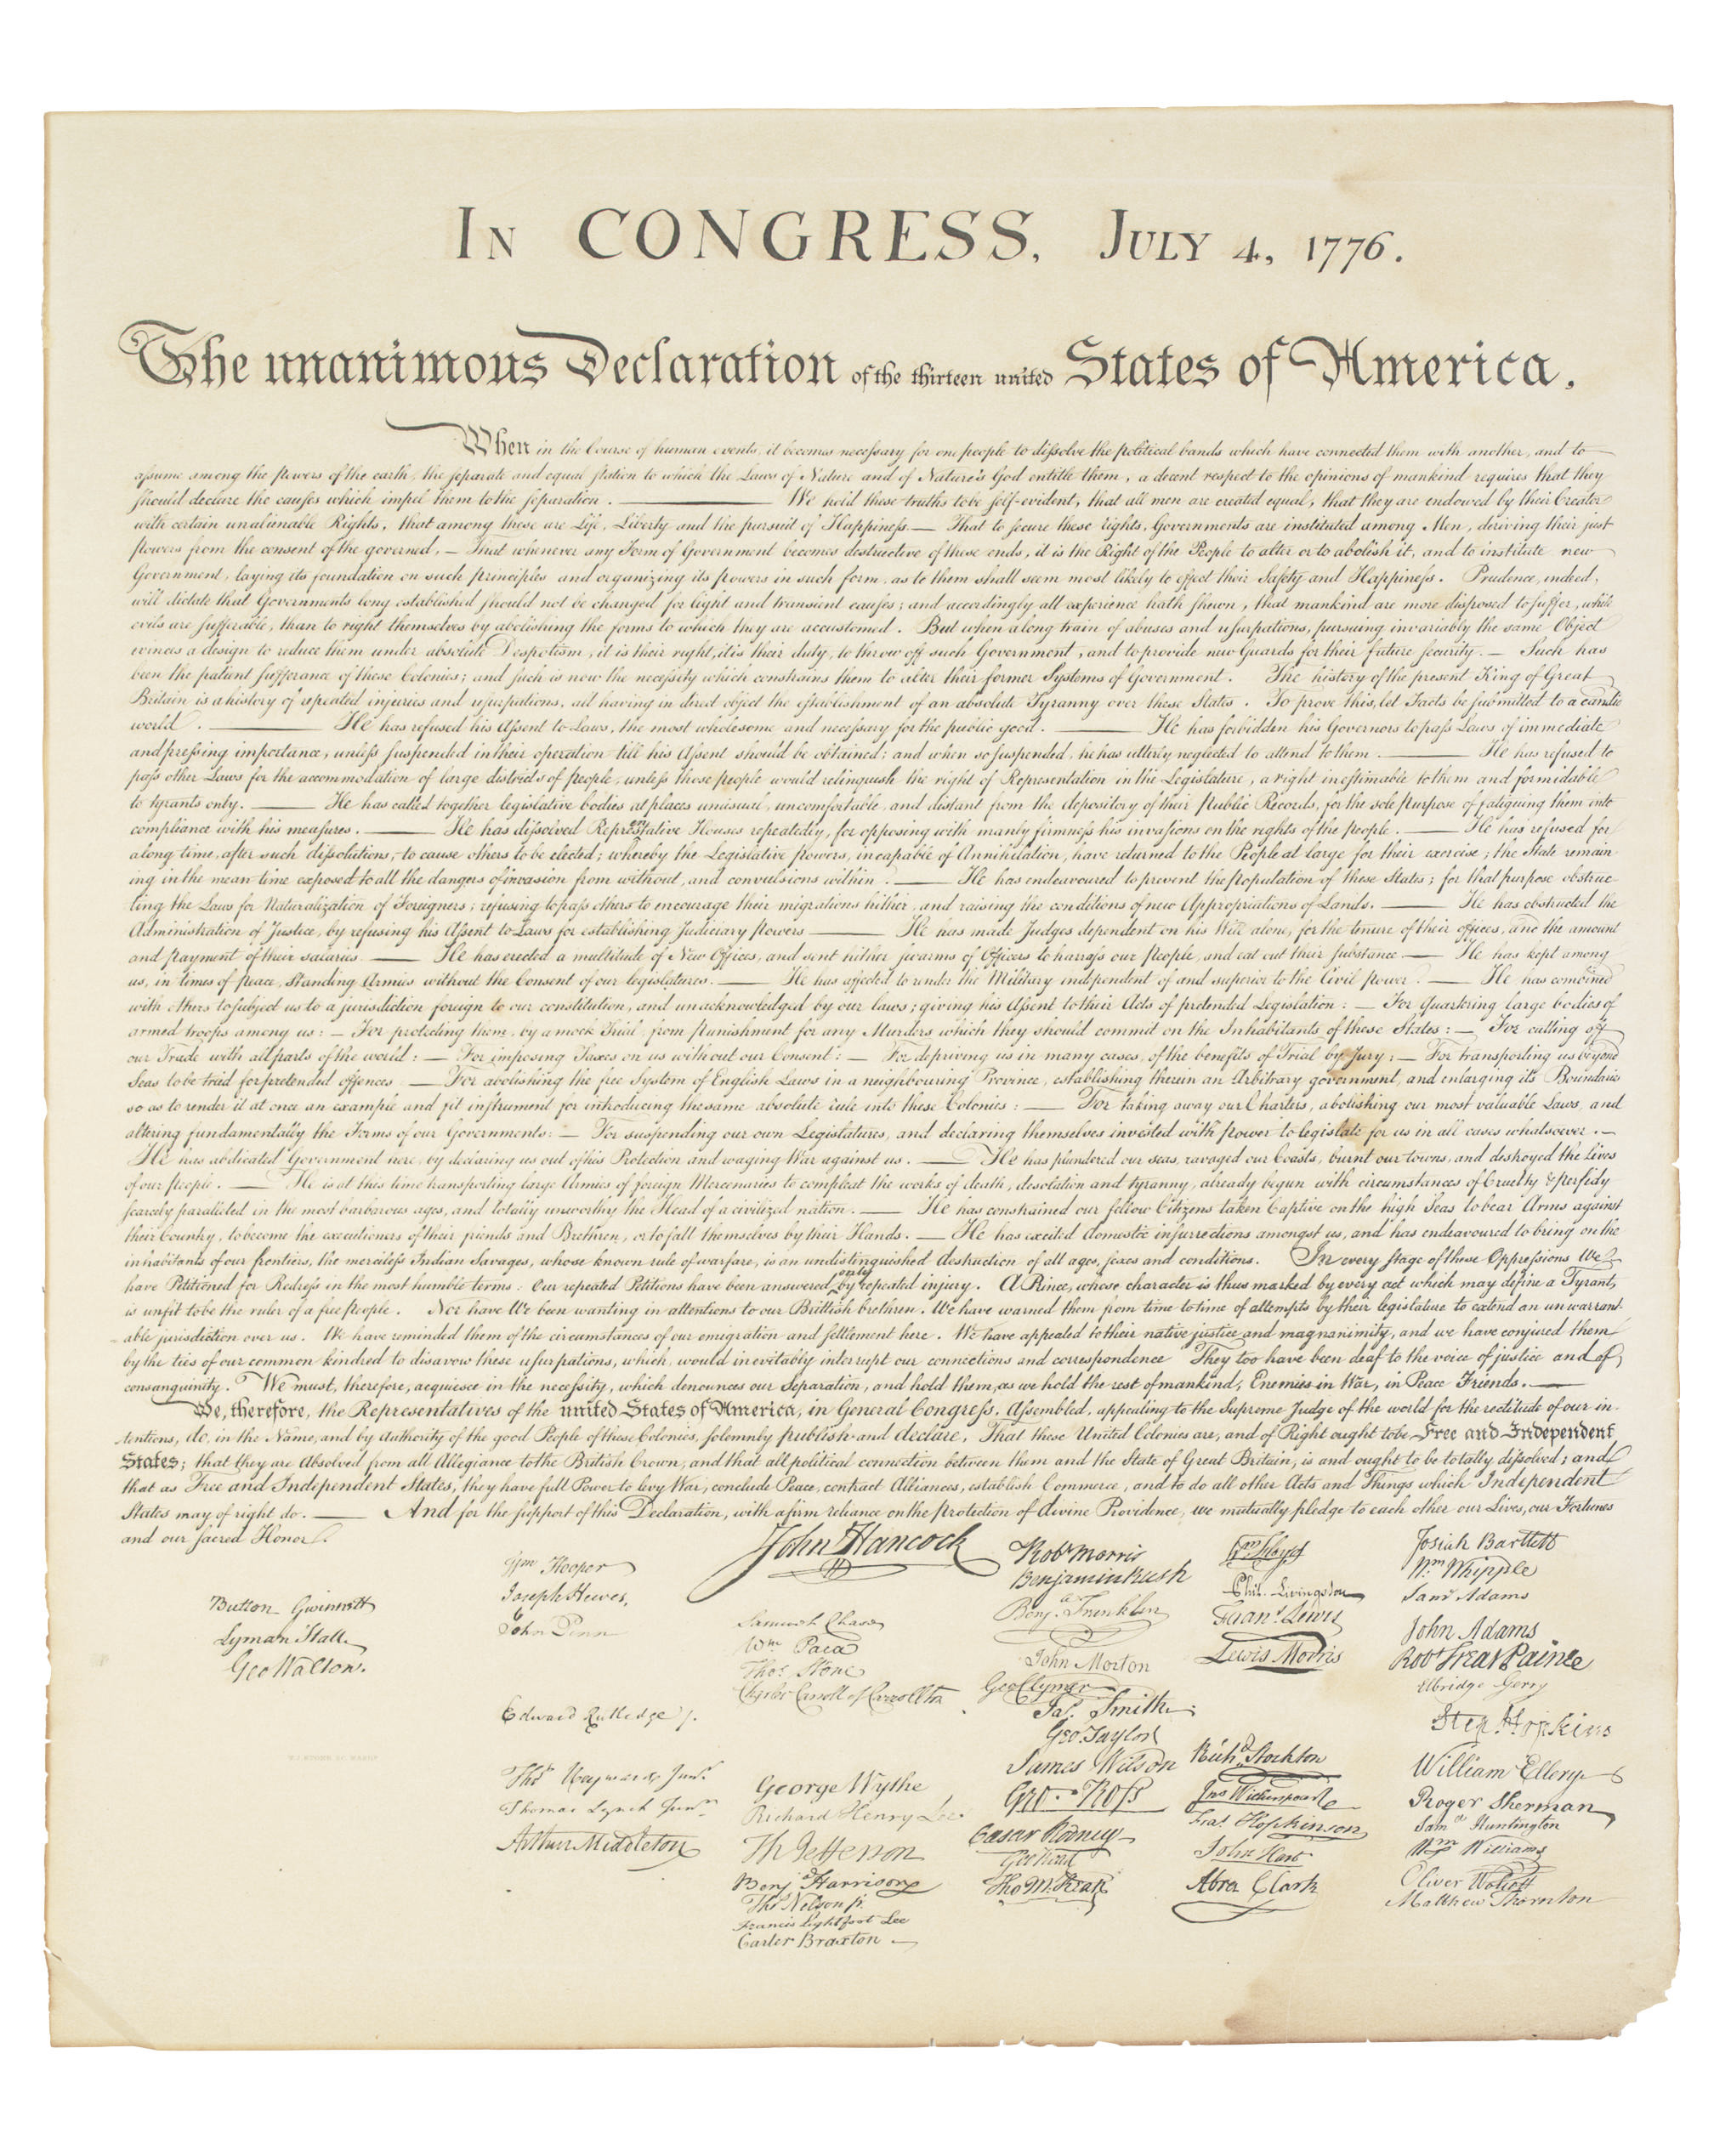 IN CONGRESS, JULY 4, 1776.
The unanimous Declaration of the thirteen united States of America.
When in the Course of human events, it becomes necessary for one people to dissolve the political bands which have connected them with another, and to
assume among the powers of the earth, the separate and equal station to which the Laws of Nature and of Nature's God entitle them, a decent respect to the opinions of mankind requires that they
should declare the causes which impel them to the separation. ——— We hold these truths to be self-evident, that all men are created equal, that they are endowed by their Creator
with certain unalienable Rights, that among these are Life, Liberty and the pursuit of Happiness. — That to secure these rights, Governments are instituted among Men, deriving their just
powers from the consent of the governed, — That whenever any Form of Government becomes destructive of these ends, it is the Right of the People to alter or to abolish it, and to institute new
Government, laying its foundation on such principles and organizing its powers in such form, as to them shall seem most likely to effect their Safety and Happiness. Prudence, indeed,
will dictate that Governments long established should not be changed for light and transient causes; and accordingly all experience hath shewn, that mankind are more disposed to suffer, while
evils are sufferable, than to right themselves by abolishing the forms to which they are accustomed. But when a long train of abuses and usurpations, pursuing invariably the same Object
evinces a design to reduce them under absolute Despotism, it is their right, it is their duty, to throw off such Government, and to provide new Guards for their future security. — Such has
been the patient sufferance of these Colonies; and such is now the necessity which constrains them to alter their former Systems of Government. The history of the present King of Great
Britain is a history of repeated injuries and usurpations, all having in direct object the establishment of an absolute Tyranny over these States. To prove this, let Facts be submitted to a candid
world. ——— He has refused his Assent to Laws, the most wholesome and necessary for the public good. ——— He has forbidden his Governors to pass Laws of immediate
and pressing importance, unless suspended in their operation till his Assent should be obtained; and when so suspended, he has utterly neglected to attend to them. ——— He has refused to
pass other Laws for the accommodation of large districts of people, unless those people would relinquish the right of Representation in the Legislature, a right inestimable to them and formidable
to tyrants only. ——— He has called together legislative bodies at places unusual, uncomfortable, and distant from the depository of their Public Records, for the sole purpose of fatiguing them into
compliance with his measures. ——— He has dissolved Representative Houses repeatedly, for opposing with manly firmness his invasions on the rights of the people. ——— He has refused for
a long time, after such dissolutions, to cause others to be elected; whereby the Legislative powers, incapable of Annihilation, have returned to the People at large for their exercise; the State remain
ing in the mean time exposed to all the dangers of invasion from without, and convulsions within. ——— He has endeavoured to prevent the population of these States; for that purpose obstruc
ting the Laws for Naturalization of Foreigners; refusing to pass others to encourage their migrations hither, and raising the conditions of new Appropriations of Lands. ——— He has obstructed the
Administration of Justice, by refusing his Assent to Laws for establishing Judiciary powers ——— He has made Judges dependent on his Will alone, for the tenure of their offices, and the amount
and payment of their salaries. ——— He has erected a multitude of New Offices, and sent hither swarms of Officers to harrass our people, and eat out their substance. ——— He has kept among
us, in times of peace, Standing Armies without the Consent of our legislatures. ——— He has affected to render the Military independent of and superior to the Civil power. ——— He has combined
with others to subject us to a jurisdiction foreign to our constitution, and unacknowledged by our laws; giving his Assent to their Acts of pretended Legislation: — For Quartering large bodies of
armed troops among us: — For protecting them, by a mock Trial, from punishment for any Murders which they should commit on the Inhabitants of these States: — For cutting off
our Trade with all parts of the world: — For imposing Taxes on us without our Consent: — For depriving us in many cases, of the benefits of Trial by Jury: — For transporting us beyond
Seas to be tried for pretended offences — For abolishing the free System of English Laws in a neighbouring Province, establishing therein an Arbitrary government, and enlarging its Boundaries
so as to render it at once an example and fit instrument for introducing the same absolute rule into these Colonies: — For taking away our Charters, abolishing our most valuable Laws, and
altering fundamentally the Forms of our Governments: — For suspending our own Legislatures, and declaring themselves invested with power to legislate for us in all cases whatsoever. —
He has abdicated Government here, by declaring us out of his Protection and waging War against us. — He has plundered our seas, ravaged our Coasts, burnt our towns, and destroyed the lives
of our people. — He is at this time transporting large Armies of foreign Mercenaries to compleat the works of death, desolation and tyranny, already begun with circumstances of Cruelty & perfidy
scarcely paralleled in the most barbarous ages, and totally unworthy the Head of a civilized nation. — He has constrained our fellow Citizens taken Captive on the high Seas to bear Arms against
their Country, to become the executioners of their friends and Brethren, or to fall themselves by their Hands. — He has excited domestic insurrections amongst us, and has endeavoured to bring on the
inhabitants of our frontiers, the merciless Indian Savages, whose known rule of warfare, is an undistinguished destruction of all ages, sexes and conditions. In every stage of these Oppressions We
have Petitioned for Redress in the most humble terms: Our repeated Petitions have been answered only by repeated injury. A Prince, whose character is thus marked by every act which may define a Tyrant,
is unfit to be the ruler of a free people. Nor have We been wanting in attentions to our Brittish brethren. We have warned them from time to time of attempts by their legislature to extend an unwarrant-
able jurisdiction over us. We have reminded them of the circumstances of our emigration and settlement here. We have appealed to their native justice and magnanimity, and we have conjured them
by the ties of our common kindred to disavow these usurpations, which, would inevitably interrupt our connections and correspondence They too have been deaf to the voice of justice and of
consanguinity. We must, therefore, acquiesce in the necessity, which denounces our Separation, and hold them, as we hold the rest of mankind, Enemies in War, in Peace Friends. —
We, therefore, the Representatives of the united States of America, in General Congress, Assembled, appealing to the Supreme Judge of the world for the rectitude of our in-
tentions, do, in the Name, and by Authority of the good People of these Colonies, solemnly publish and declare, That these United Colonies are, and of Right ought to be Free and Independent
States; that they are Absolved from all Allegiance to the British Crown, and that all political connection between them and the State of Great Britain, is and ought to be totally dissolved; and
that as Free and Independent States, they have full Power to levy War, conclude Peace, contract Alliances, establish Commerce, and to do all other Acts and Things which Independent
States may of right do. ——— And for the support of this Declaration, with a firm reliance on the protection of divine Providence, we mutually pledge to each other our Lives, our Fortunes
and our sacred Honor.
John Hancock
Button Gwinnett
Lyman Hall
Geo Walton.
Wm Hooper
Joseph Hewes,
John Penn
Edward Rutledge /.
Thos Heyward Junr.
Thomas Lynch Junr.
Arthur Middleton
Samuel Chase
Wm Paca
Thos Stone
Charles Carroll of Carrollton
George Wythe
Richard Henry Lee
Th Jefferson
Benj Harrison
Thos Nelson jr.
Francis Lightfoot Lee
Carter Braxton
Robt Morris
Benjamin Rush
Benj. Franklin
John Morton
Geo Clymer
Jas. Smith
Geo. Taylor
James Wilson
Geo. Ross
Caesar Rodney
Geo Read
Tho M:Kean
Wm Floyd
Phil. Livingston
Frans. Lewis
Lewis Morris
Richd. Stockton
Jno Witherspoon
Fras. Hopkinson
John Hart
Abra Clark
Josiah Bartlett
Wm. Whipple
Saml Adams
John Adams
Robt Treat Paine
Elbridge Gerry
Step. Hopkins
William Ellery
Roger Sherman
Saml Huntington
Wm Williams
Oliver Wolcott
Matthew Thornton